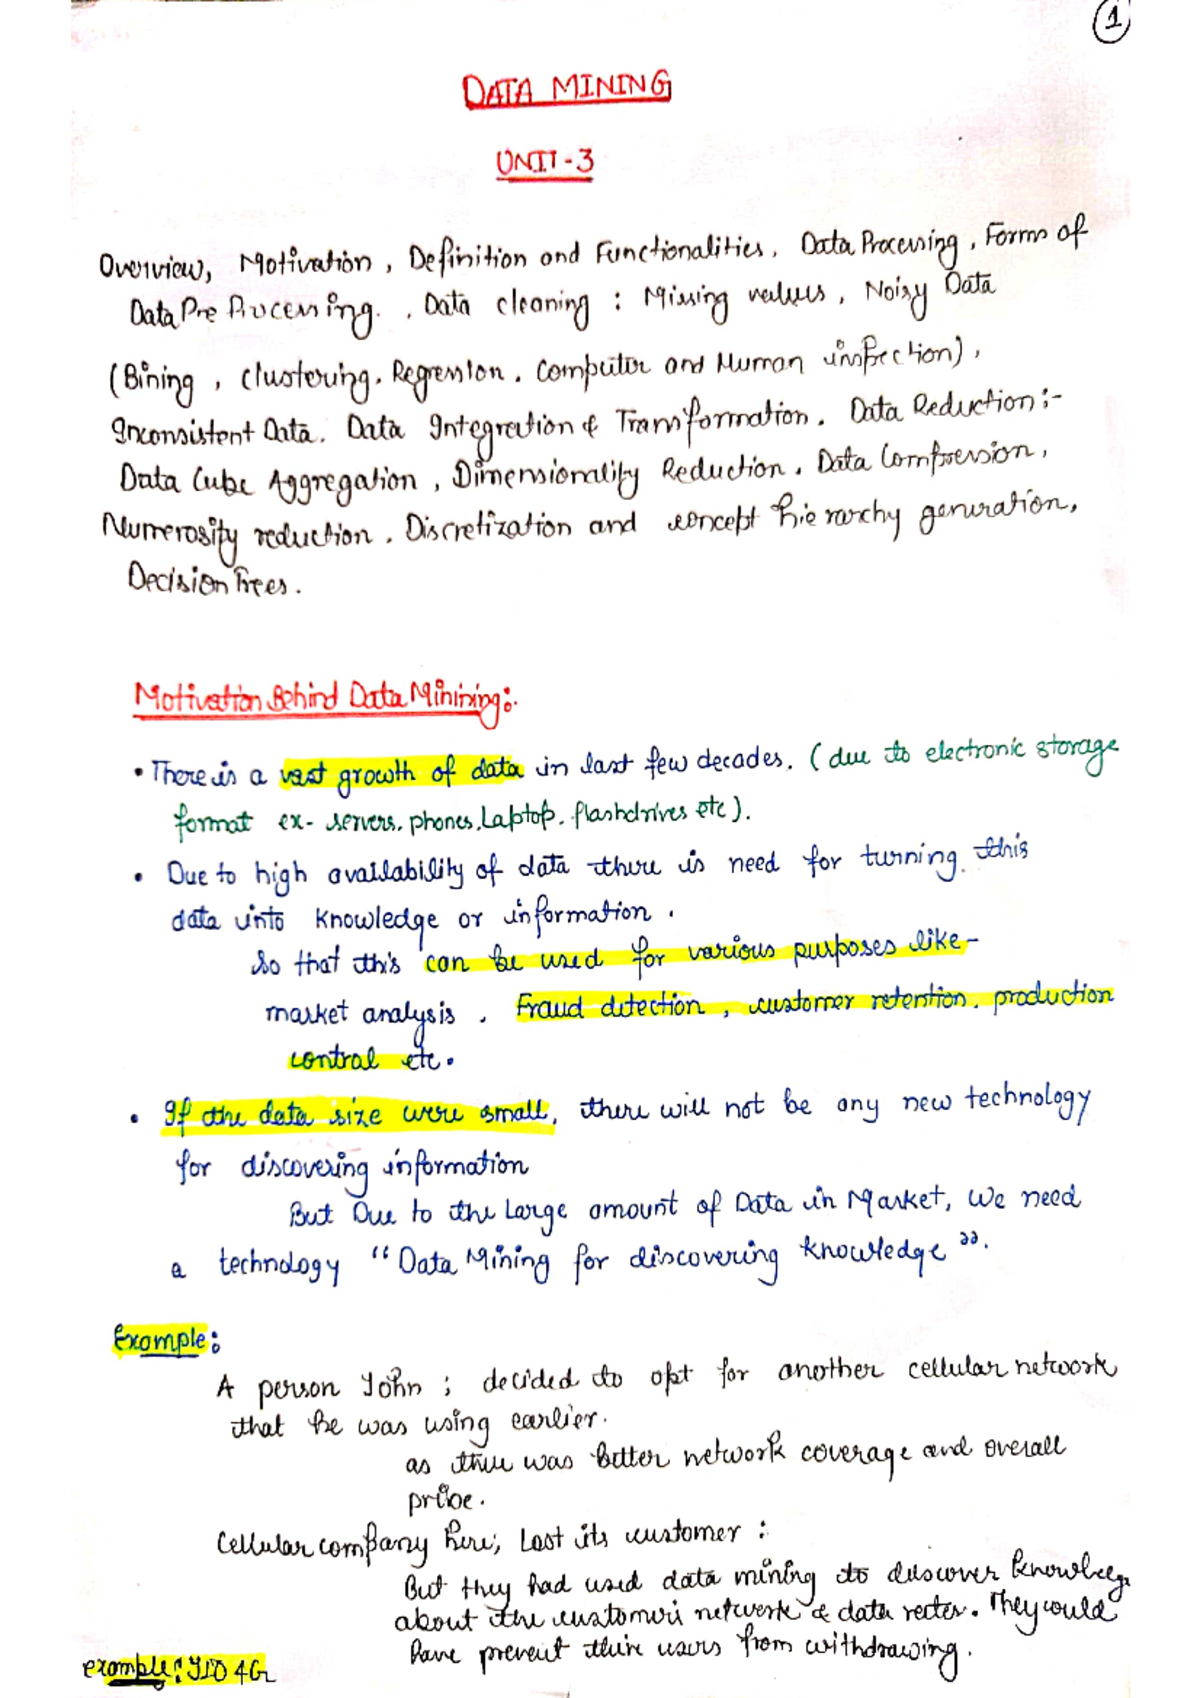 1
DATA MINING
UNIT-3
Overview, Motivation, Definition and Functionalities, Data Processing, Forms of
Data Pre Processing. , Data cleaning : Missing values, Noisy Data
(Bining, clustering, Regression, Computer and Human inspection),
Inconsistent Data. Data Integration & Transformation. Data Reduction:-
Data Cube Aggregation, Dimensionality Reduction, Data Compression,
Numerosity reduction, Discretization and concept hierarchy generation,
Decision Trees.
Motivation Behind Data Minining:-
• There is a vast growth of data in last few decades. (due to electronic storage
format ex- servers, phones, Laptop, flashdrives etc).
• Due to high availability of data there is need for turning this
data into knowledge or information.
So that this can be used for various purposes like-
market analysis, Fraud detection, customer retention, production
control etc.
• If the data size were small, there will not be any new technology
for discovering information
But Due to the Large amount of Data in Market, We need
a technology "Data Mining for discovering knowledge".
Example:
A person John; decided to opt for another cellular network
that he was using earlier.
as there was better network coverage and overall
price.
Cellular company here; Lost its customer:
But they had used data mining to discover knowledge
about the customers network & data rates. They could
have prevent their users from withdrawing.
example: JIO 4G